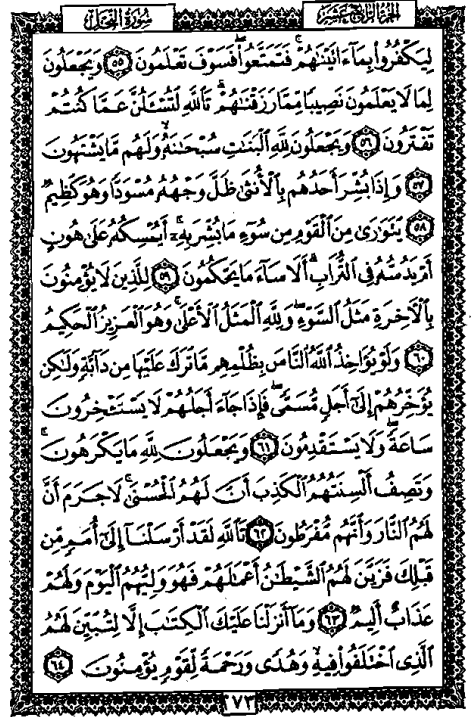 الجزء الرابع عشر سورة النحل
لِيَكْفُرُوا۟ بِمَآ ءَاتَيْنَٰهُمْ ۚ فَتَمَتَّعُوا۟ ۖ فَسَوْفَ تَعْلَمُونَ ٥٥ وَيَجْعَلُونَ
لِمَا لَا يَعْلَمُونَ نَصِيبًا مِّمَّا رَزَقْنَٰهُمْ ۗ تَٱللَّهِ لَتُسْـَٔلُنَّ عَمَّا كُنتُمْ
تَفْتَرُونَ ٥٦ وَيَجْعَلُونَ لِلَّهِ ٱلْبَنَٰتِ سُبْحَٰنَهُۥ ۙ وَلَهُم مَّا يَشْتَهُونَ
٥٧ وَإِذَا بُشِّرَ أَحَدُهُم بِٱلْأُنثَىٰ ظَلَّ وَجْهُهُۥ مُسْوَدًّا وَهُوَ كَظِيمٌ
٥٨ يَتَوَٰرَىٰ مِنَ ٱلْقَوْمِ مِن سُوٓءِ مَا بُشِّرَ بِهِۦٓ ۚ أَيُمْسِكُهُۥ عَلَىٰ هُونٍ
أَمْ يَدُسُّهُۥ فِى ٱلتُّرَابِ ۗ أَلَا سَآءَ مَا يَحْكُمُونَ ٥٩ لِلَّذِينَ لَا يُؤْمِنُونَ
بِٱلْءَاخِرَةِ مَثَلُ ٱلسَّوْءِ ۖ وَلِلَّهِ ٱلْمَثَلُ ٱلْأَعْلَىٰ ۚ وَهُوَ ٱلْعَزِيزُ ٱلْحَكِيمُ
٦٠ وَلَوْ يُؤَاخِذُ ٱللَّهُ ٱلنَّاسَ بِظُلْمِهِم مَّا تَرَكَ عَلَيْهَا مِن دَآبَّةٍ وَلَٰكِن
يُؤَخِّرُهُمْ إِلَىٰٓ أَجَلٍ مُّسَمًّى ۖ فَإِذَا جَآءَ أَجَلُهُمْ لَا يَسْتَـْٔخِرُونَ
سَاعَةً ۖ وَلَا يَسْتَقْدِمُونَ ٦١ وَيَجْعَلُونَ لِلَّهِ مَا يَكْرَهُونَ ۚ
وَتَصِفُ أَلْسِنَتُهُمُ ٱلْكَذِبَ أَنَّ لَهُمُ ٱلْحُسْنَىٰ ۖ لَا جَرَمَ أَنَّ
لَهُمُ ٱلنَّارَ وَأَنَّهُم مُّفْرَطُونَ ٦٢ تَٱللَّهِ لَقَدْ أَرْسَلْنَآ إِلَىٰٓ أُمَمٍ مِّن
قَبْلِكَ فَزَيَّنَ لَهُمُ ٱلشَّيْطَٰنُ أَعْمَٰلَهُمْ فَهُوَ وَلِيُّهُمُ ٱلْيَوْمَ وَلَهُمْ
عَذَابٌ أَلِيمٌ ٦٣ وَمَآ أَنزَلْنَا عَلَيْكَ ٱلْكِتَٰبَ إِلَّا لِتُبَيِّنَ لَهُمُ
ٱلَّذِى ٱخْتَلَفُوا۟ فِيهِ ۙ وَهُدًى وَرَحْمَةً لِّقَوْمٍ يُؤْمِنُونَ ٦٤
٢٧٣